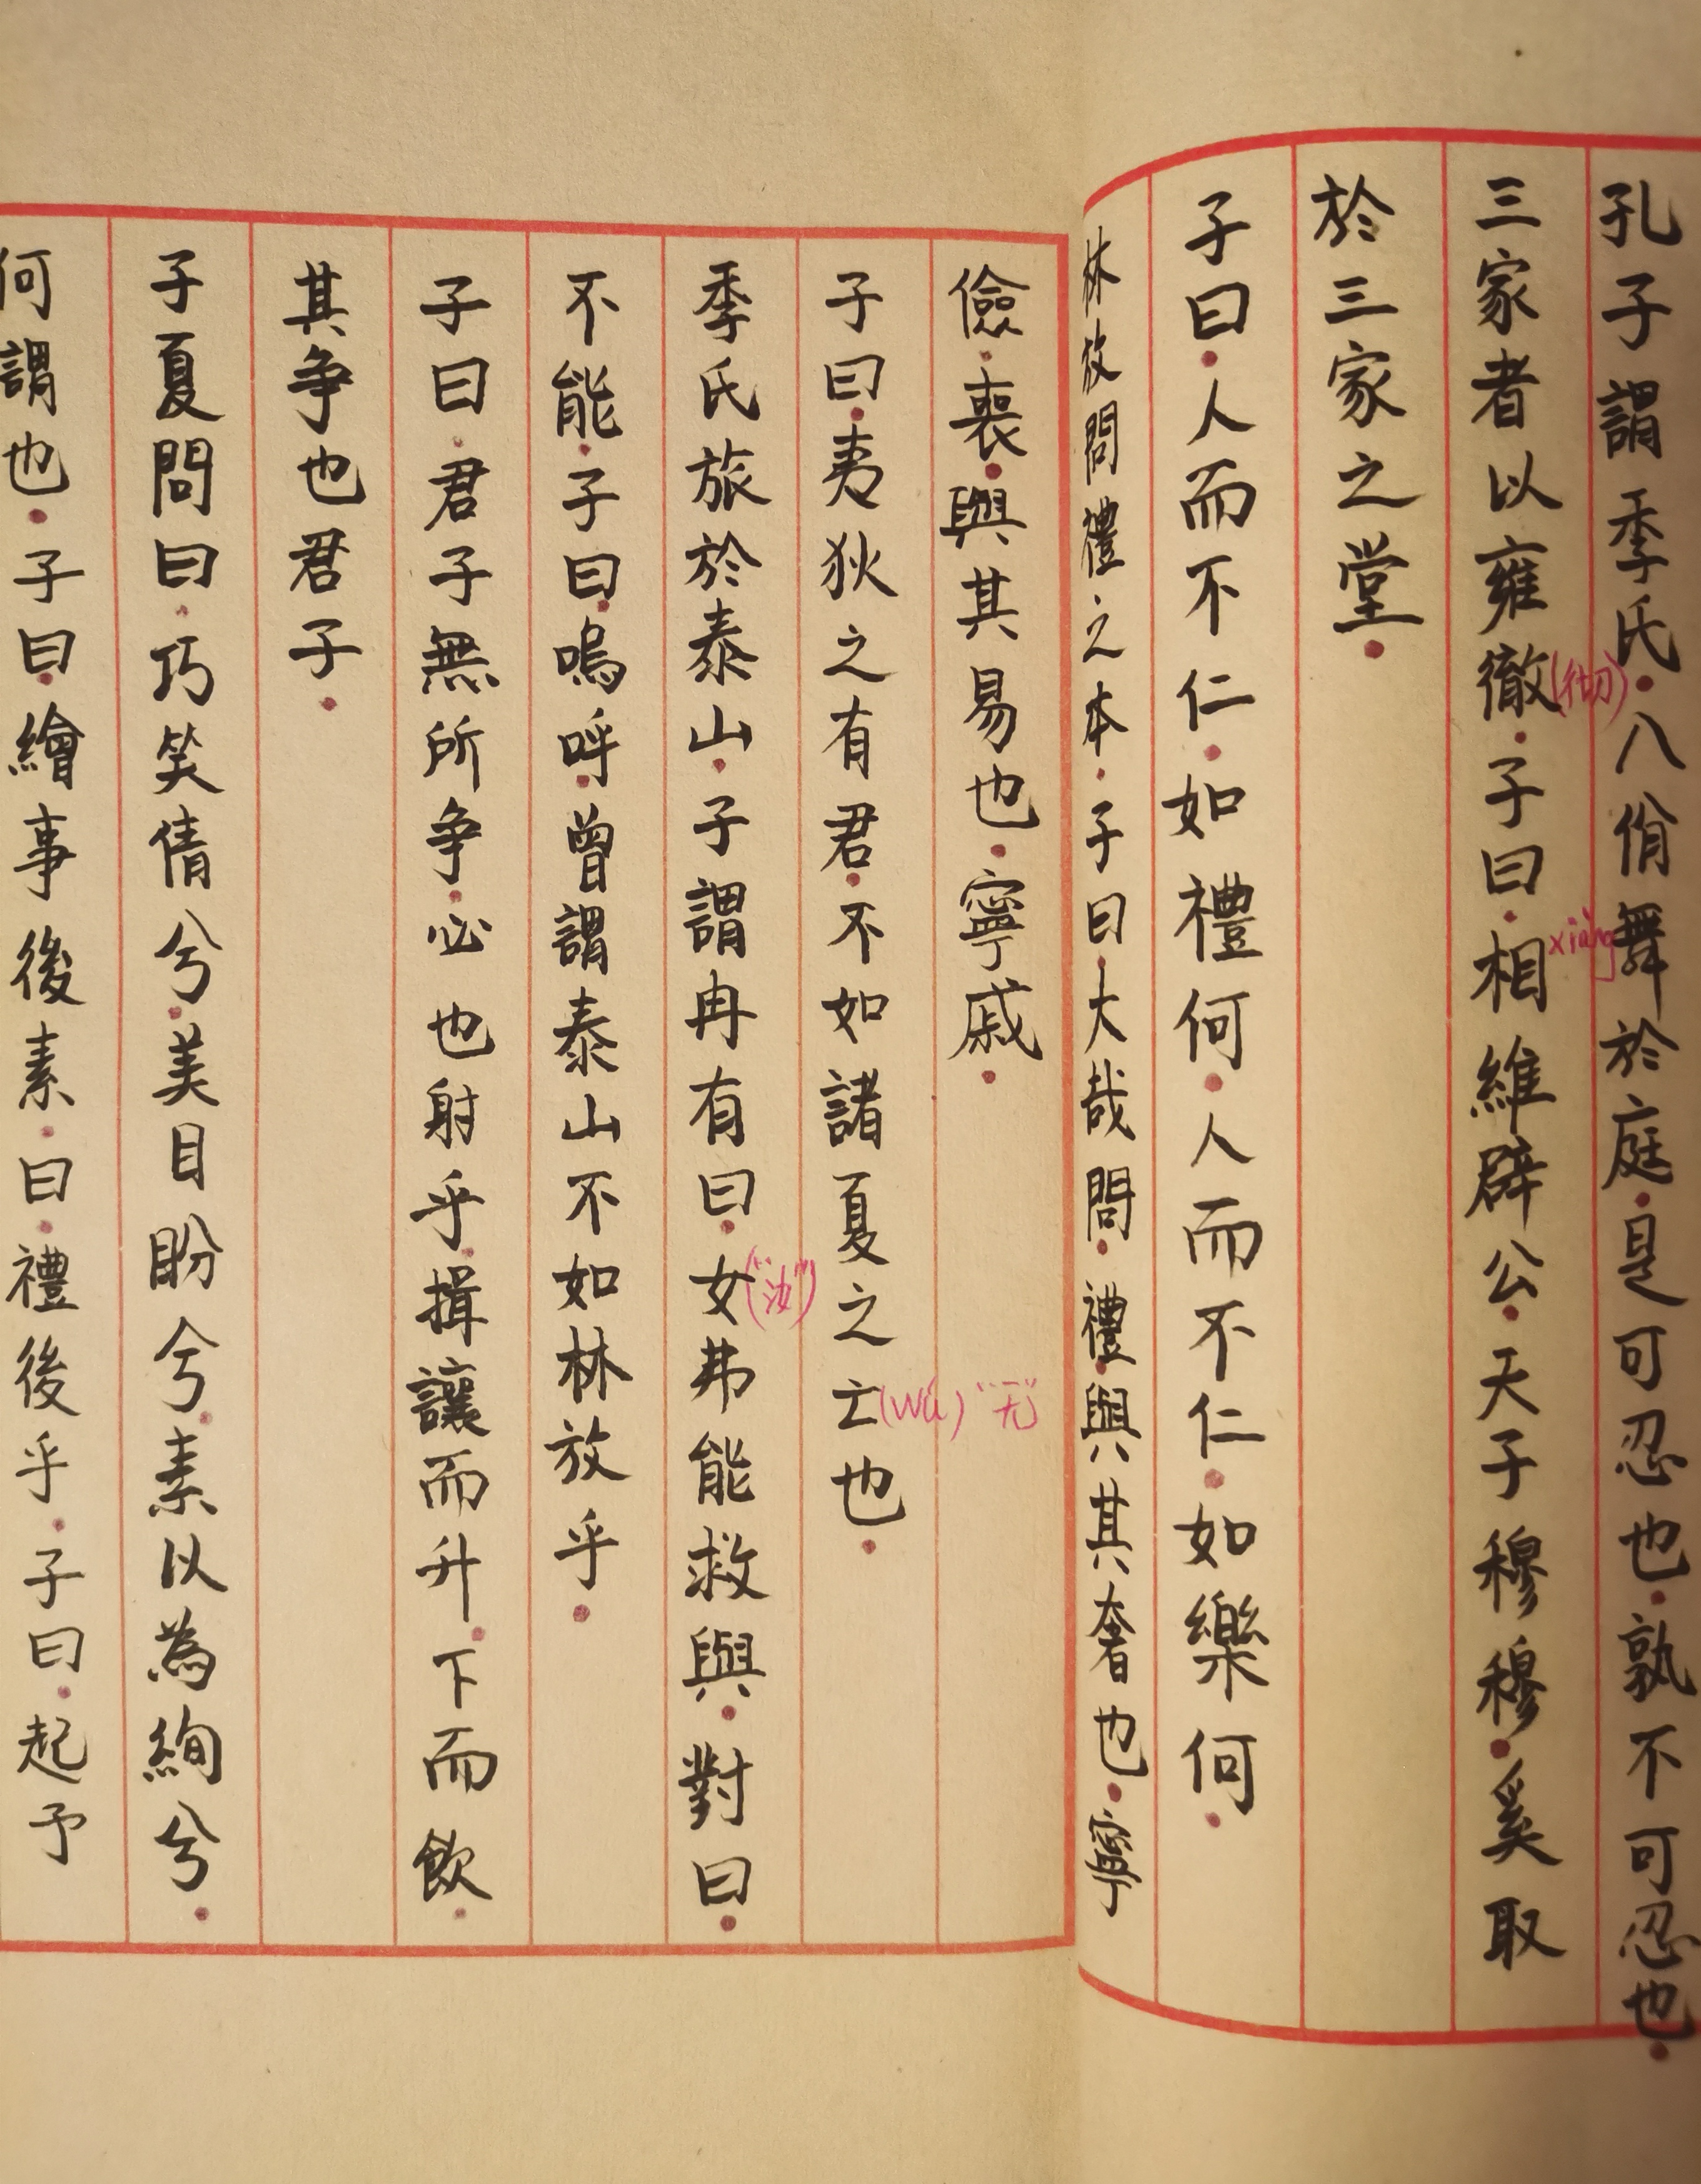 孔子謂季氏·八佾舞於庭·是可忍也·孰不可忍也·
三家者以雍徹(彻)·子曰·相xiàng維辟公·天子穆穆·奚取
於三家之堂·
子曰·人而不仁·如禮何·人而不仁·如樂何·
林放問禮·之本·子曰·大哉問·禮·與其奢也·寧
儉·喪·與其易也·寧戚·
子曰·夷狄之有君·不如諸夏之亡(wú)"无"也·
季氏旅於泰山·子謂冉有曰·女("汝")弗能救與·對曰·
不能·子曰·嗚呼·曾謂泰山不如林放乎·
子曰·君子無所争·必也射乎·揖讓而升·下而飲·
其争也君子·
子夏問曰·巧笑倩兮·美目盼兮·素以為絢兮·
何謂也·子曰·繪事後素·曰·禮後乎·子曰·起予